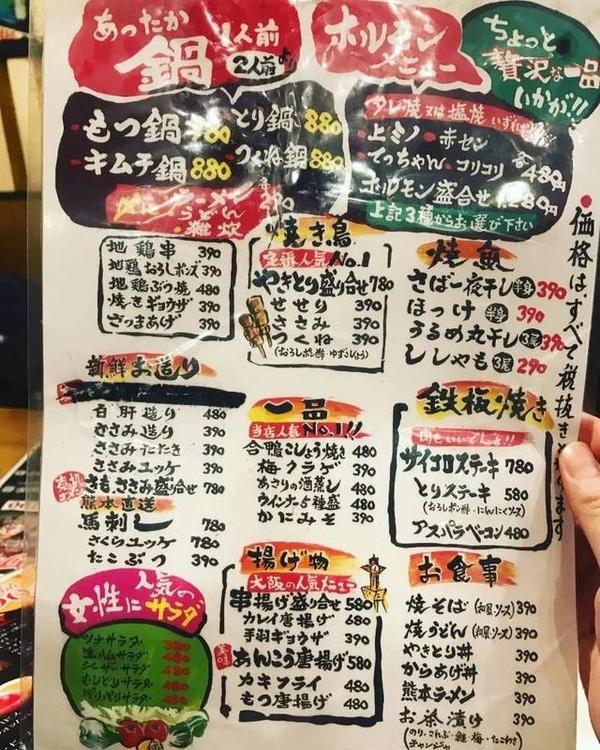 あったか
鍋
1人前
2人前より
ホルモン
メニュー
ちょっと
贅沢な一品
いかが!!
もつ鍋 780
とり鍋 880
キムチ鍋 880
つくね鍋 880
ラーメン
うどん
雑炊
各290
タレ焼又は塩焼
上ミノ・赤セン
てっちゃん・コリコリ
各480円
ホルモン盛合せ 1,280円
上記3種からお選び下さい
地鶏串 390
地鶏おろしポンズ 390
地鶏ぶつ焼 480
焼きギョウザ 390
さつまあげ 390
焼き鳥
定番人気No.1
やきとり盛り合せ 780
せせり 390
ささみ 390
つくね 390
(おろしポン酢・ゆずこしょう)
焼魚
さば一夜干し 半身 390
ほっけ 半身 390
うるめ丸干し 3尾 390
ししゃも 3尾 290
価格はすべて税抜き
ます
新鮮お造り
白肝造り 480
ささみ造り 390
ささみたたき 390
ささみユッケ 390
きもささみ盛合せ 780
熊本直送
馬刺し 780
さくらユッケ 780
たこぶつ 390
一品
当店人気No.1!!
合鴨こしょう焼き 480
梅クラゲ 390
あさりの酒蒸し 480
ウインナー5種盛 480
かにみそ 390
鉄板焼き
サイコロステーキ 780
とりステーキ 580
(おろしポン酢・にんにくソース)
アスパラベーコン 480
人気の
女性にサラダ
ツナサラダ 380
生ハムサラダ 480
シーザーサラダ 480
むしどりサラダ 480
パリパリサラダ 480
揚げ物
大阪の人気メニュー
串揚げ盛り合せ 580
カレイ唐揚げ 680
手羽ギョウザ 390
美味
あんこう唐揚げ 580
カキフライ 480
もつ唐揚げ 480
お食事
焼そば (和風・ソース) 390
焼うどん (和風・ソース) 390
やきとり丼 390
からあげ丼 390
熊本ラーメン 390
お茶漬け 390
(のり・こんぶ・鮭・梅・たこわさ
チャンジャ)